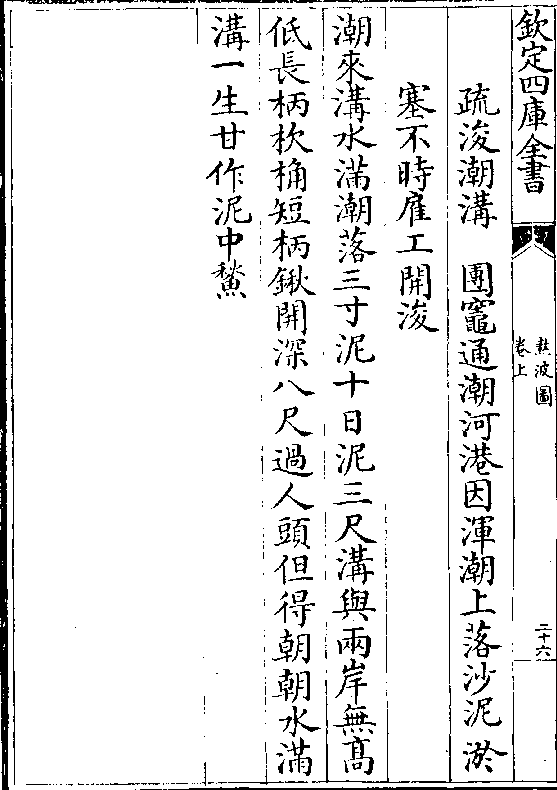 欽定四庫全書
熬波圖
卷上
二十六
疏浚潮溝　團竈通潮河港因渾潮上落沙泥淤
塞不時雇工開浚
潮來溝水滿潮落三寸泥十日泥三尺溝與兩岸無髙
低長柄杴桶短柄鍬開深八尺過人頭但得朝朝水滿
溝一生甘作泥中鰍